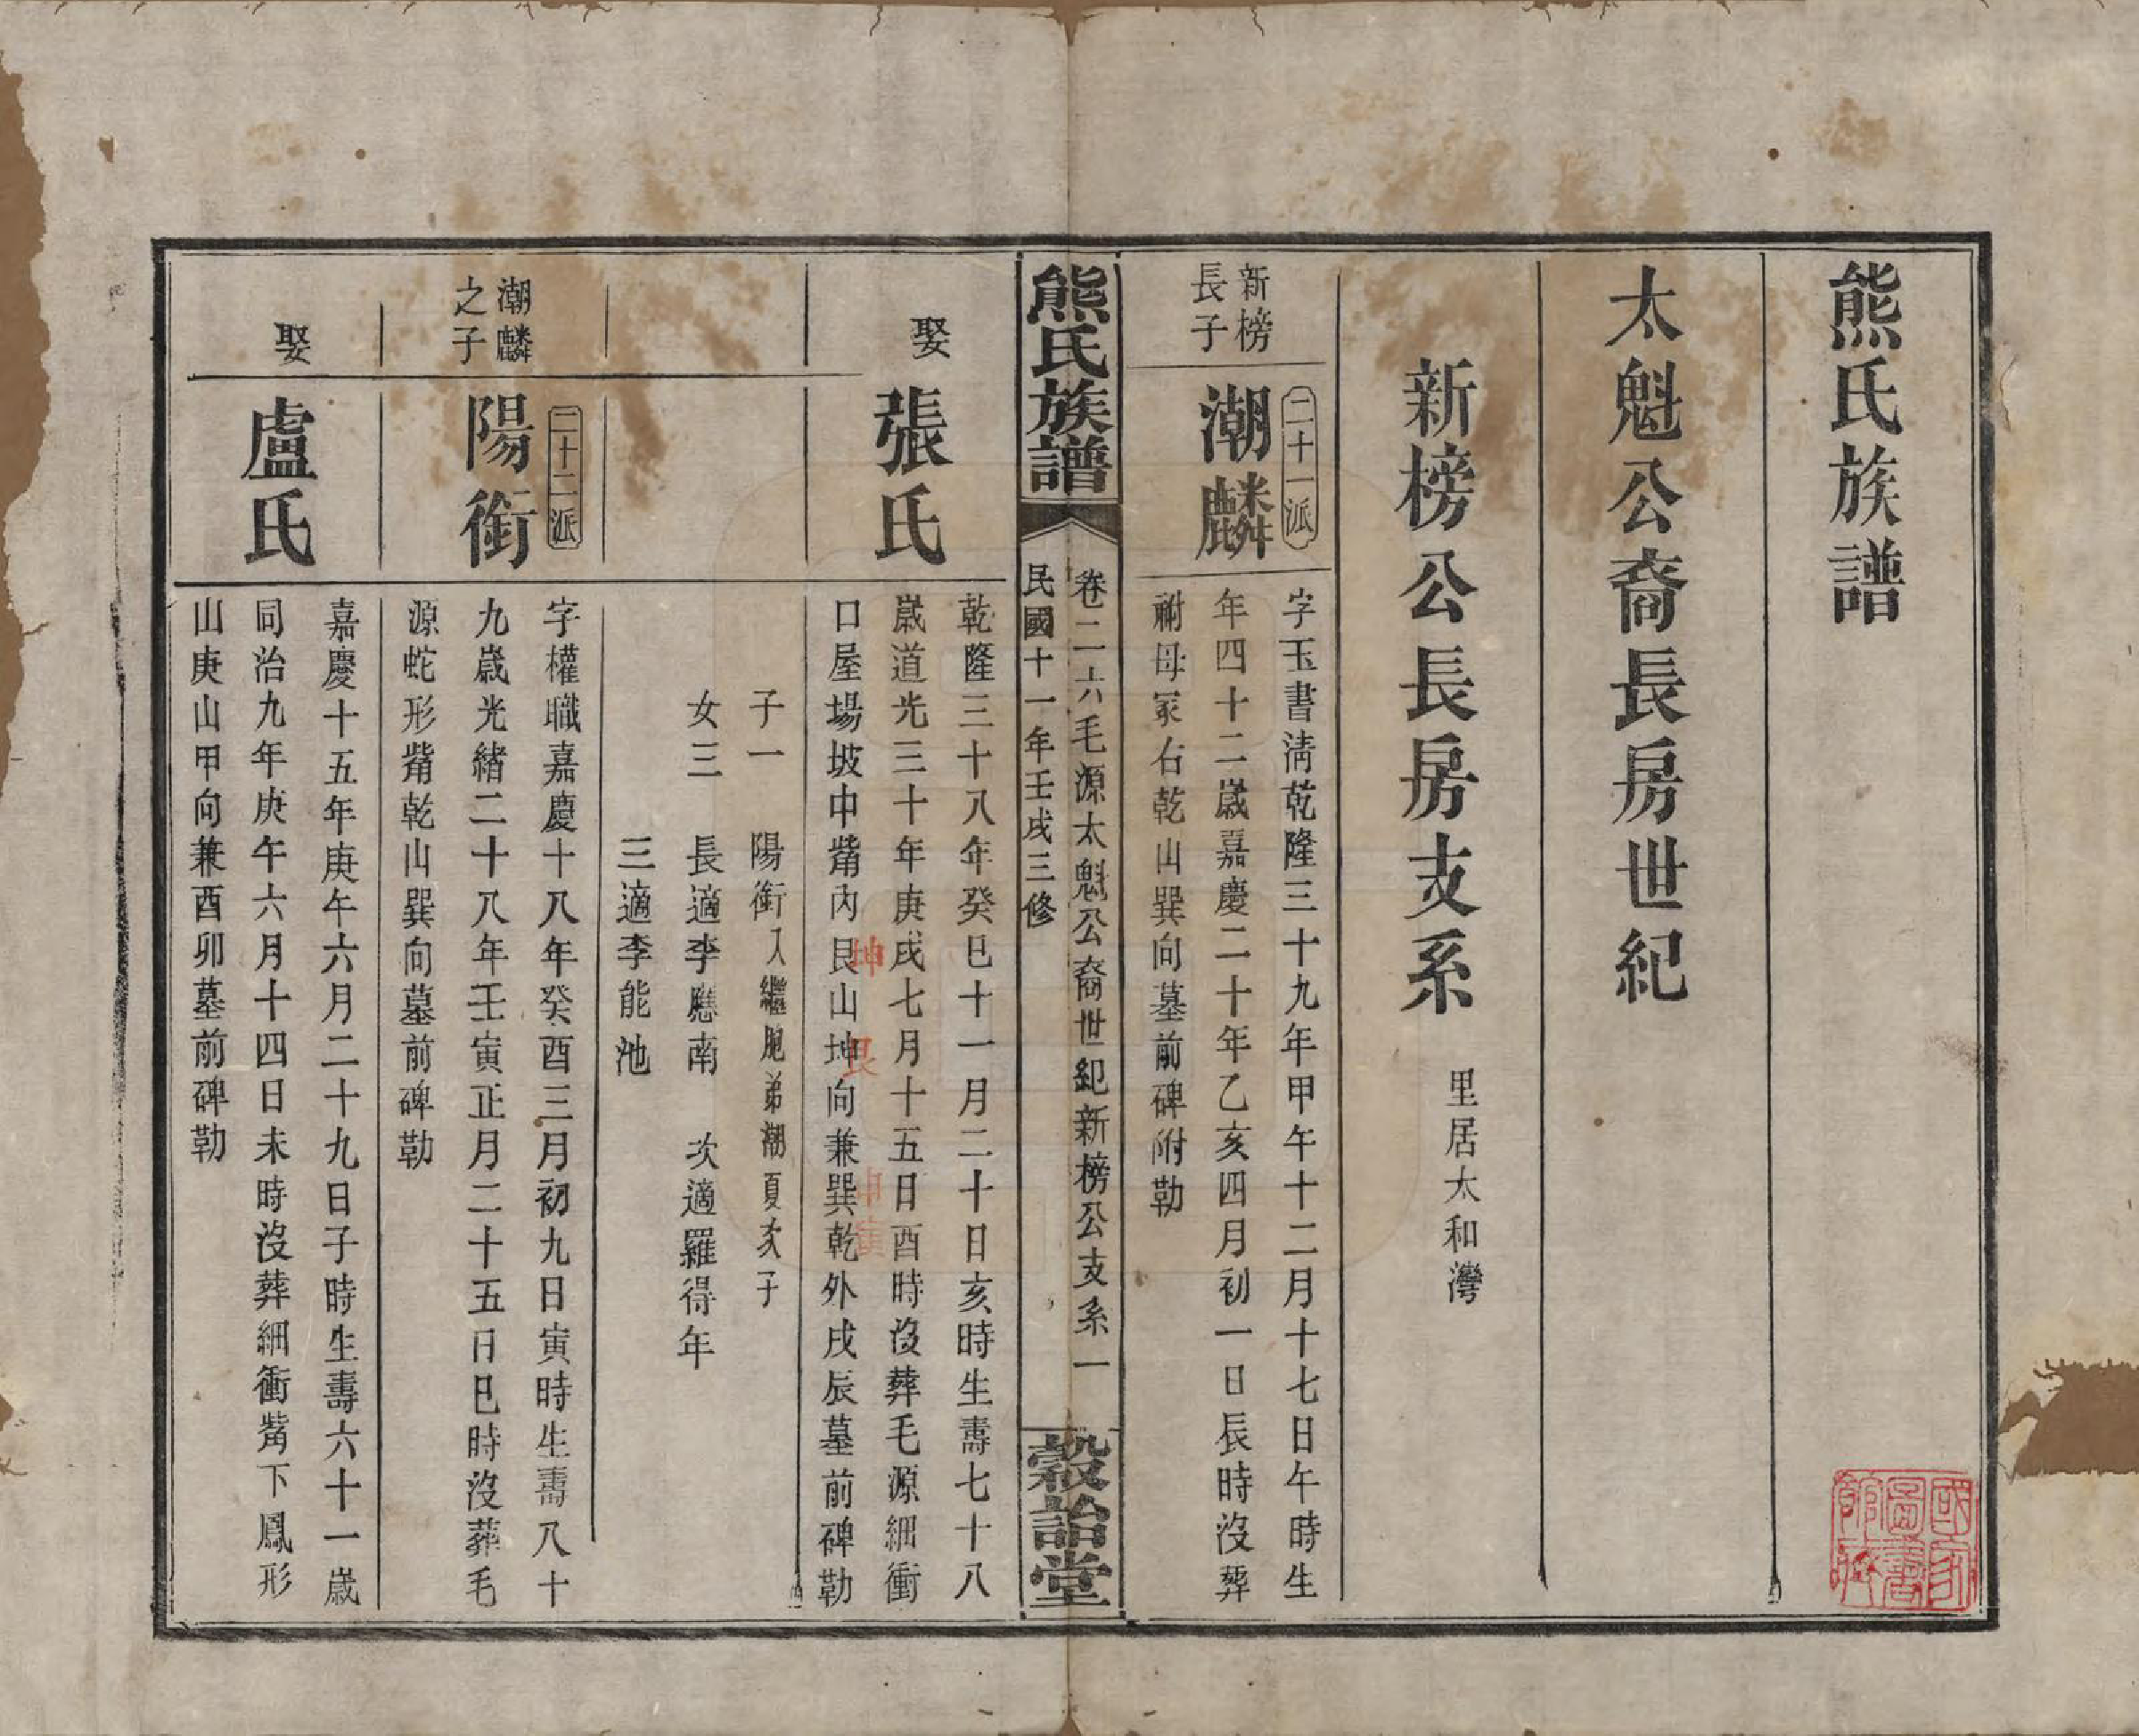 熊氏族譜
太魁公裔長房世紀
新榜公長房支系
里居太和灣
新榜
長子
二十一派
潮麟
字玉書淸乾隆三十九年甲午十二月十七日午時生
年四十二歲嘉慶二十年乙亥四月初一日辰時沒葬
祔母冢右乾山巽向墓前碑附勒
熊氏族譜
卷二一六毛源太魁公裔世紀新榜公支系一
民國十一年壬戌三修
穀詒堂
娶
張氏
乾隆三十八年癸巳十一月二十日亥時生壽七十八
歲道光三十年庚戌七月十五日酉時沒葬毛源細衝
口屋場坡中觜內艮山坤向兼巽乾外戌辰墓前碑勒
坤 艮 申寅
子一 陽銜入繼胞弟潮夏次子
女三 長適李應南 次適羅得年
三適李能池
潮麟
之子
二十二派
陽銜
字權職嘉慶十八年癸酉三月初九日寅時生壽八十
九歲光緒二十八年壬寅正月二十五日巳時沒葬毛
源蛇形觜乾山巽向墓前碑勒
娶
盧氏
嘉慶十五年庚午六月二十九日子時生壽六十一歲
同治九年庚午六月十四日未時沒葬細衝觜下鳳形
山庚山甲向兼酉卯墓前碑勒
國家
圖書
館藏